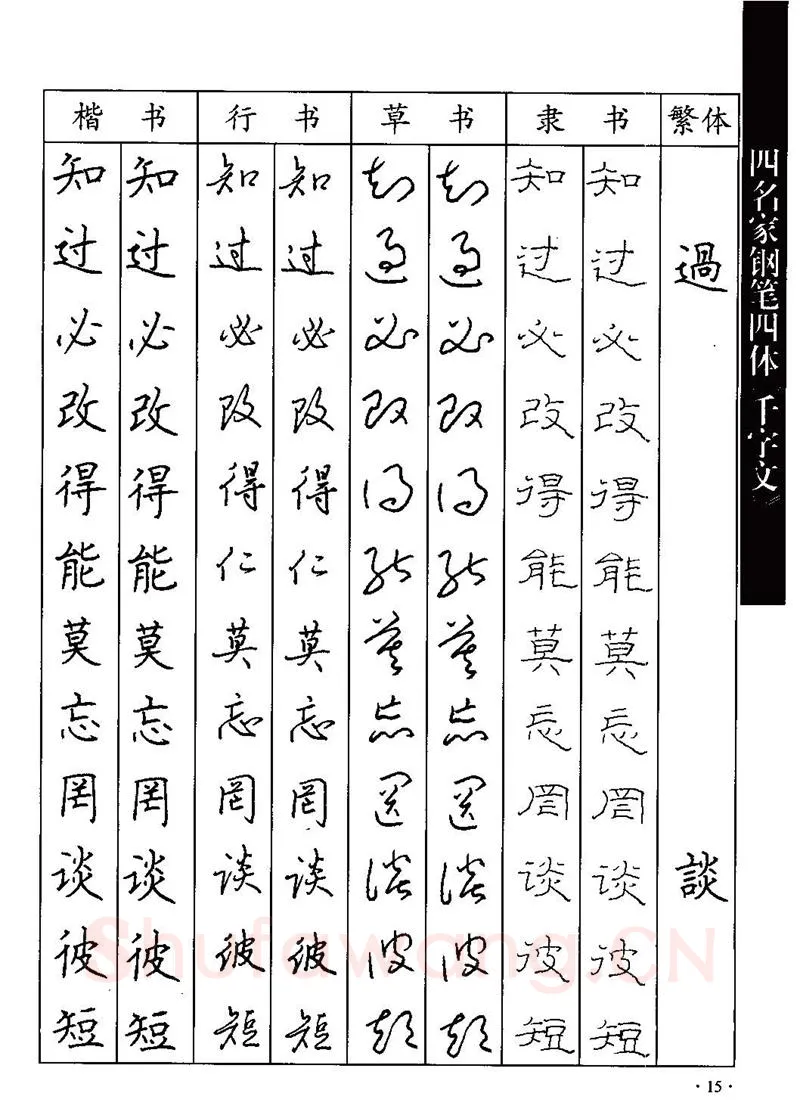 楷书 行书 草书 隶书 繁体
知过必改得能莫忘罔谈彼短
知过必改得能莫忘罔谈彼短
知过必改得仁莫忘罔谈彼短
知过必改得仁莫忘罔谈彼短
知過必改得能莫忘罔谈彼短
知過必改得能莫忘罔谈彼短
知过必改得能莫忘罔谈彼短
知过必改得能莫忘罔谈彼短
過 談
四名家钢笔四体《千字文》
Shufawang.CN
·15·